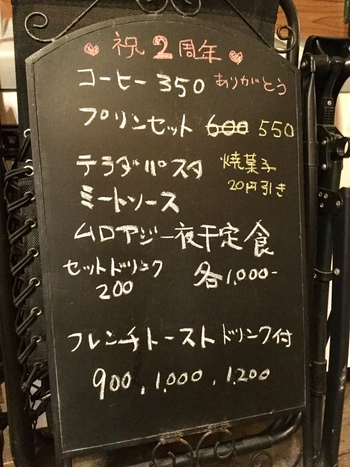 ♥ 祝2周年 ♥
コーヒー 350 ありがとう
プリンセット 600 550
テラダパスタ 焼菓子
20円引き
ミートソース
ムロアジ一夜干定食
セットドリンク 各1,000-
200
フレンチトーストドリンク付
900, 1,000, 1,200